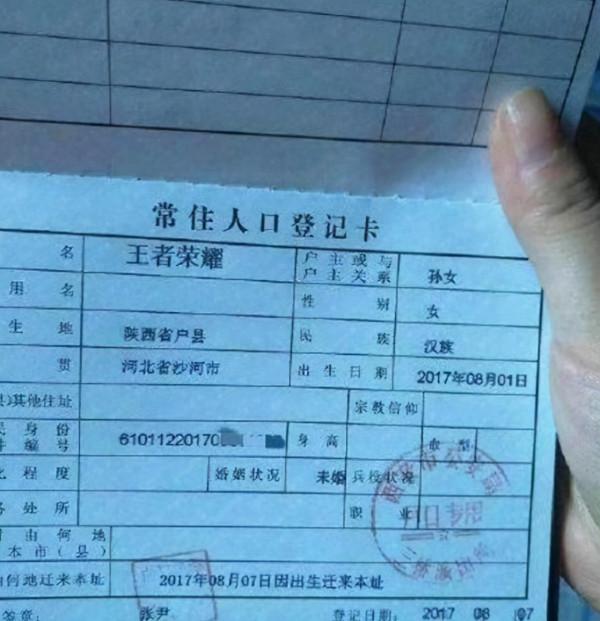 常住人口登记卡
名 王者荣耀 户主或与户主关系 孙女
用名 性别 女
生地 陕西省户县 民族 汉族
贯 河北省沙河市 出生日期 2017年08月01日
其他住址 宗教信仰
民身份 件编号 61011220170 身高 血型
程度 婚姻状况 未婚 兵役状况
务处所 职业
由何地
本市(县)
何地迁来本址 2017年08月07日因出生迁来本址
签章: 张尹 登记日期: 2017 08 07
户口专用